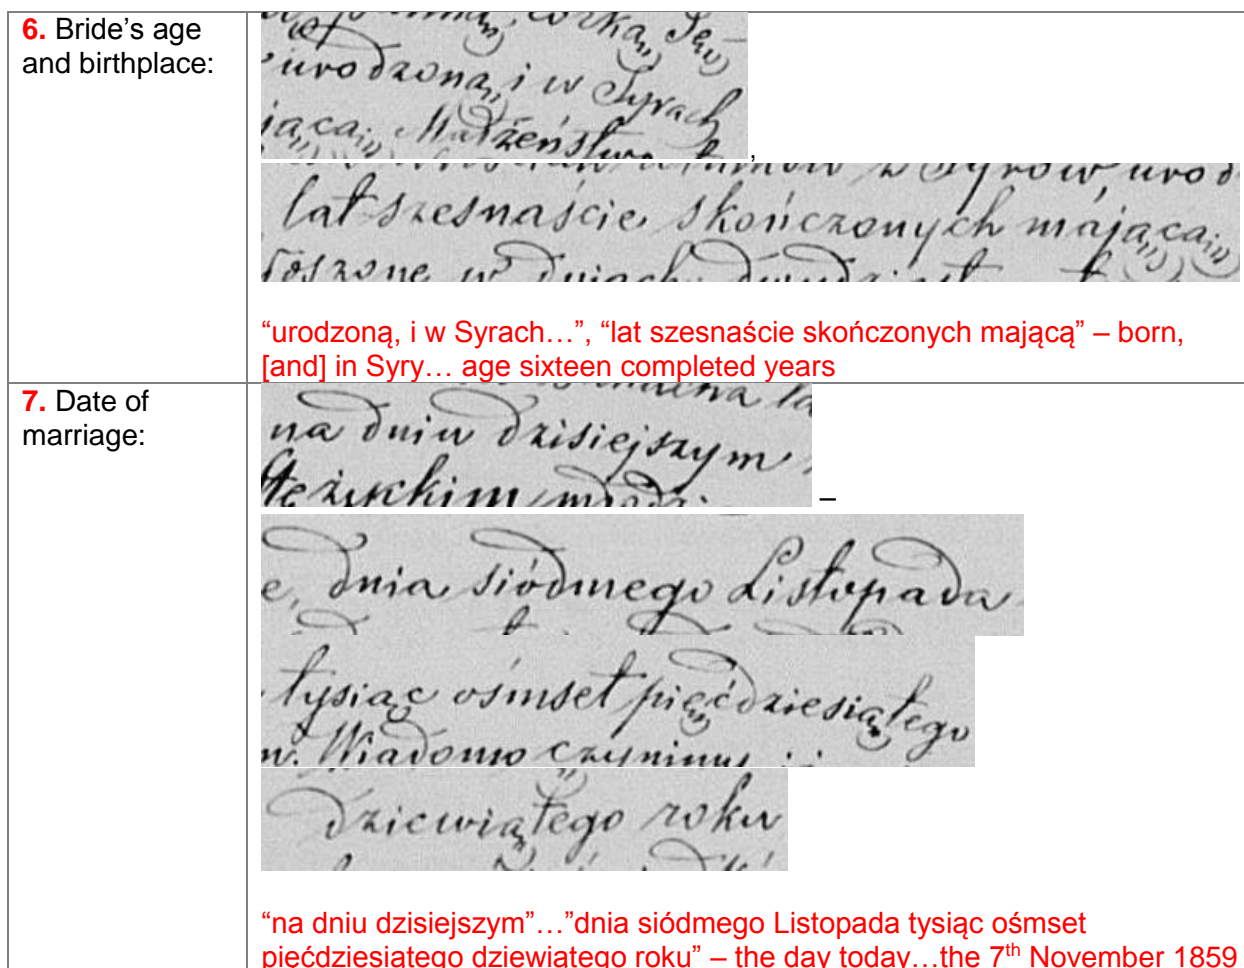 6. Bride’s age
and birthplace:
urodzoną, i w Syrach
jącą, Małżeństwo
,
z Syrów, urod
lat szesnaście skończonych mającą
“urodzoną, i w Syrach…”, “lat szesnaście skończonych mającą” – born,
[and] in Syry… age sixteen completed years
7. Date of
marriage:
na dniu dzisiejszym
–
e, dnia siódmego Listopada
tysiąc ośmset pięćdziesiątego
w. Wiadomo czynimy
dziewiątego roku
“na dniu dzisiejszym”…”dnia siódmego Listopada tysiąc ośmset
pięćdziesiątego dziewiątego roku” – the day today…the 7th November 1859